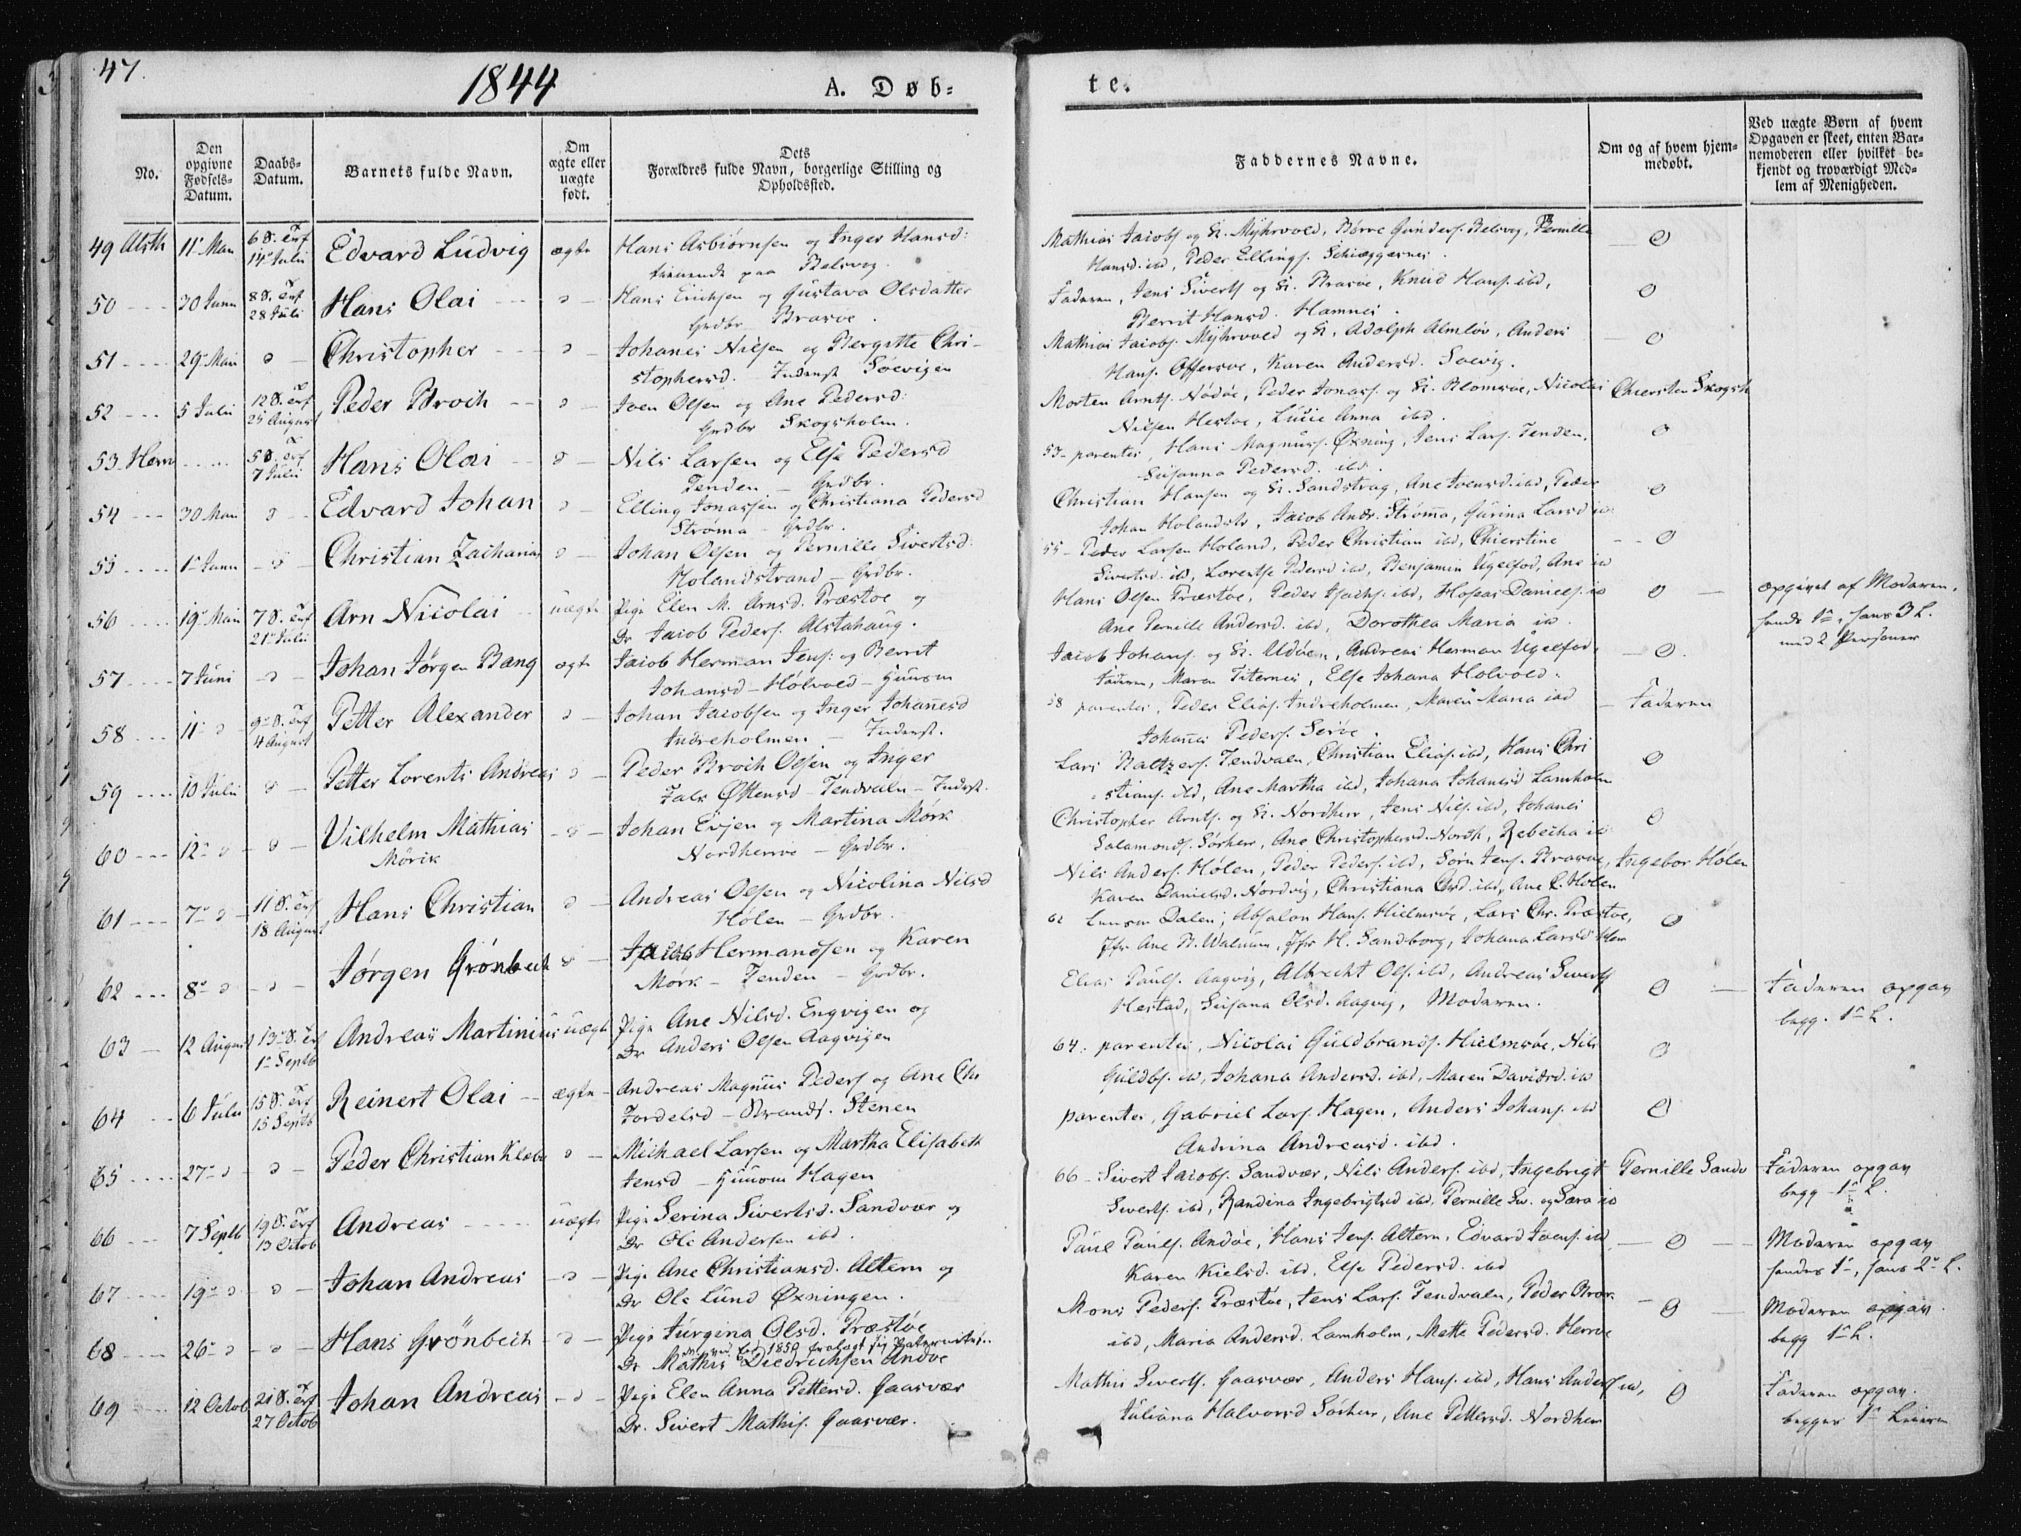 47.
1844
A. Døb-
te.
No.
Den opgivne Fødsels-Datum.
Daabs-Datum.
Barnets fulde Navn.
Om ægte eller uægte født.
Dets Forældres fulde Navn, borgerlige Stilling og Opholdssted.
Faddernes Navne.
Om og af hvem hjemmedøbt.
Ved uægte Børn af hvem Opgaven er skeet, enten Barnemoderen eller hvilket bekjendt og troværdigt Medlem af Menigheden.
49 Alsth 11 Mai 6 S. Trf 14 Juli Edvard Ludvig ægte Hans Asbiørnsen og Inger Hansd:
tienende paa Belsvog
Mathias Jacobs og K. Myhrvold, Børre Gunders. Belsvog, Pernille
Hansd. ibd, Peder Ellings. Schieggesnes.
50 30 Juni 8 S. Trf 28 Juli Hans Olai Hans Erichsen og Gustava Olsdatter
Grdbr Brasøe.
Faderen, Jens Siverts og K. Brasøe, Knud Hans. ibd,
Berrit Hansd. Hamnes.
51 29 Mai Christopher Johanes Nilsen og Bergitte Chri-
stophersd. Inderst Søevigen
Mathias Jacobs. Myhrvold og K. Adolph Almløv, Anders
Hans. Offersøe, Karen Andersd. Søevig.
52 5 Juli 12 S. Trf 25 August Peder Broch Iver Olsen og Ane Pedersd:
Grdbr Skogsholm.
Morten Arnts. Nødøe, Peder Jonas. og K. Blomsøe, Nicolai
Nilsen Hestøe, Lucie Anna ibd.
Chiersten Skogsh
53 Herø 5 S. Trf 7 Juli Hans Olai Nils Larsen og Else Pedersd
Tenden - Grdbr.
53- parentes, Hans Magnus. Øxning, Jens Lars. Tenden,
Susanna Pedersd. ibd.
54 30 Mai Edvard Johan Elling Jonassen og Christiana Pedersd
Strøma - Grdbr.
Christian Hansen og K. Sandstrag, Ane Iversd. ibd, Peder
Johan Holandstr, Jacob Andr. Strøma, Gurina Larsd ib
55 1 Juni Christian Zacharias Johan Olsen og Pernille Sivertsd:
Holandstrand - Grdbr.
55- Peder Larsen Holand, Peder Christian ibd, Chierstine
Sivertsd. ibd, Lorentse Pedersd ibd, Benjamin Ugelfod, Ane ib
56 19 Mai 7 S. Trf 21 Juli Arn Nicolai uægte Pige Elen M. Arnsd. Præstøe og
Dr Jacob Peders. Alstahaug.
Hans Olsen Præstøe, Peder Isachs. ibd, Hoseas Daniels. ib
Ane Pernille Andersd. ibd, Dorothea Maria ib.
opgivet af Moderen,
hendes 1te, hans 3 L.
med 2 Personer
57 7 Juni Johan Jørgen Bang ægte Jacob Herman Jens. og Berrit
Johansd - Holvold - Huusm
Jacob Johans. og K. Udøen, Andreas Herman Ugelfod,
Faderen, Maren Titernes, Else Johana Holvold.
58 11 9 S. Trf 4 August Petter Alexander Johan Jacobsen og Inger Johanesd
Indreholmen - Inderst.
58 parentes, Peder Elias. Indreholmen, Maren Maria ibd
Johanes Peders. Serøe.
Faderen
59 10 Juli Petter Lorents Andreas Peder Broch Olsen og Inger
Østensd - Tendvalen - Inderst.
Lars Baltzers. Tendvalen, Christian Elias. ibd, Hans Chri
stians. ibd, Ane Martha ibd, Johana Johanesd Lamholm
60 12 Vilhelm Mathias
Mörik
Johan Evjen og Martina Mørk
Nordherrøe - Grdbr.
Christopher Arnts. og K. Nordherr, Jens Nils. ibd, Johanes
Salamonds. Sørherr, Ane Christophersd. Nordh, Rebecha ib
61 7 11 S. Trf 18 August Hans Christian Andreas Olsen og Nicolina Nilsd
Holen - Grdbr.
Nils Anders. Holen, Peder Peders. ibd, Sørn Jens. Brasøe,
Karen Danielsd. Nordvig, Christiana Chrd. ibd, Ane C. Holen
Ingebor Holen
62 8 Jørgen Grönbech Jacob Hermandsen og Karen
Mørk - Tenden - Grdbr.
62 Dalen, Absalon Hans. Hielmsøe, Lars Chr. Præstøe,
Jfr Ane B. Walnum, Jfr H. Sandborg, Johana Larsd Her
63 12 August 13 S. Trf 1 Septb Andreas Martinius uægte Pige Ane Nilsd. Engvigen og
Dr Anders Olsen Aagvigen
Elias Pauls. Aagvig, Albrecht Ols. ibd, Andreas Siverts
Hestad, Susana Olsd. Aagvig, Moderen.
Faderen opgav
begg. 1te L.
64 6 Juli 15 S. Trf 15 Septb Reinert Olai ægte Andreas Magnus Peders og Ane Chr
Tordelsd - Strands. Stenen
64. parentes, Nicolai Guldbrands. Hielmsøe, Nils
Guldbs. ib, Johana Andersd. ibd, Maren Davidsd. ib
65 27 Peder Christian Klæbo Michael Larsen og Martha Elisabeth
Jensd - Huusm Hagen
parentes, Gabriel Lars. Hagen, Anders Johans. ibd
Andrina Andreasd. ibd.
66 7 Septb 19 S. Trf 13 Octob Andreas uægte Pige Serina Sivertsd. Sandvær og
Dr Ole Andersen ibd.
66- Sivert Jacobs. Sandvær, Nils Anders. ibd, Ingebrigt
Siverts. ibd, Randina Ingebrigtsd ibd, Pernille Siv. og Sara ib
Pernille Sandv
Faderen opgav
begg 1te L.
67 19 Johan Andreas Pige Ane Christiansd. Altern og
Dr Ole Lund Øxningen.
Paul Pauls. Andøe, Hans Jens. Altern, Edvard Ivers. ibd,
Karen Kielsd. ibd, Else Pedersd. ibd
Moderen opgav
hendes 1te, hans 2 L.
68 26 Hans Grönbech Pige Jurgina Olsd. Præstøe
Dr Mathis Diedrichsen Andøe
Mons Peders. Præstøe, Jens Lars. Tendvalen, Peder Bror
ibd, Maria Andersd. Lamholm, Mette Pedersd. Herrøe
Moderen opgav
begg 1te L.
69 12 Octob 21 S. Trf 27 Octob Johan Andreas Pige Elen Anna Pettersd. Gaasvær
Dr. Sivert Mathis. Gaasvær.
Mathis Siverts. Gaasvær, Anders Hans. ibd, Hans Anders ib,
Juliana Halvorsd Sørherr, Ane Pettersd. Nordherr
Faderen opgav.
begges 1te Leierm